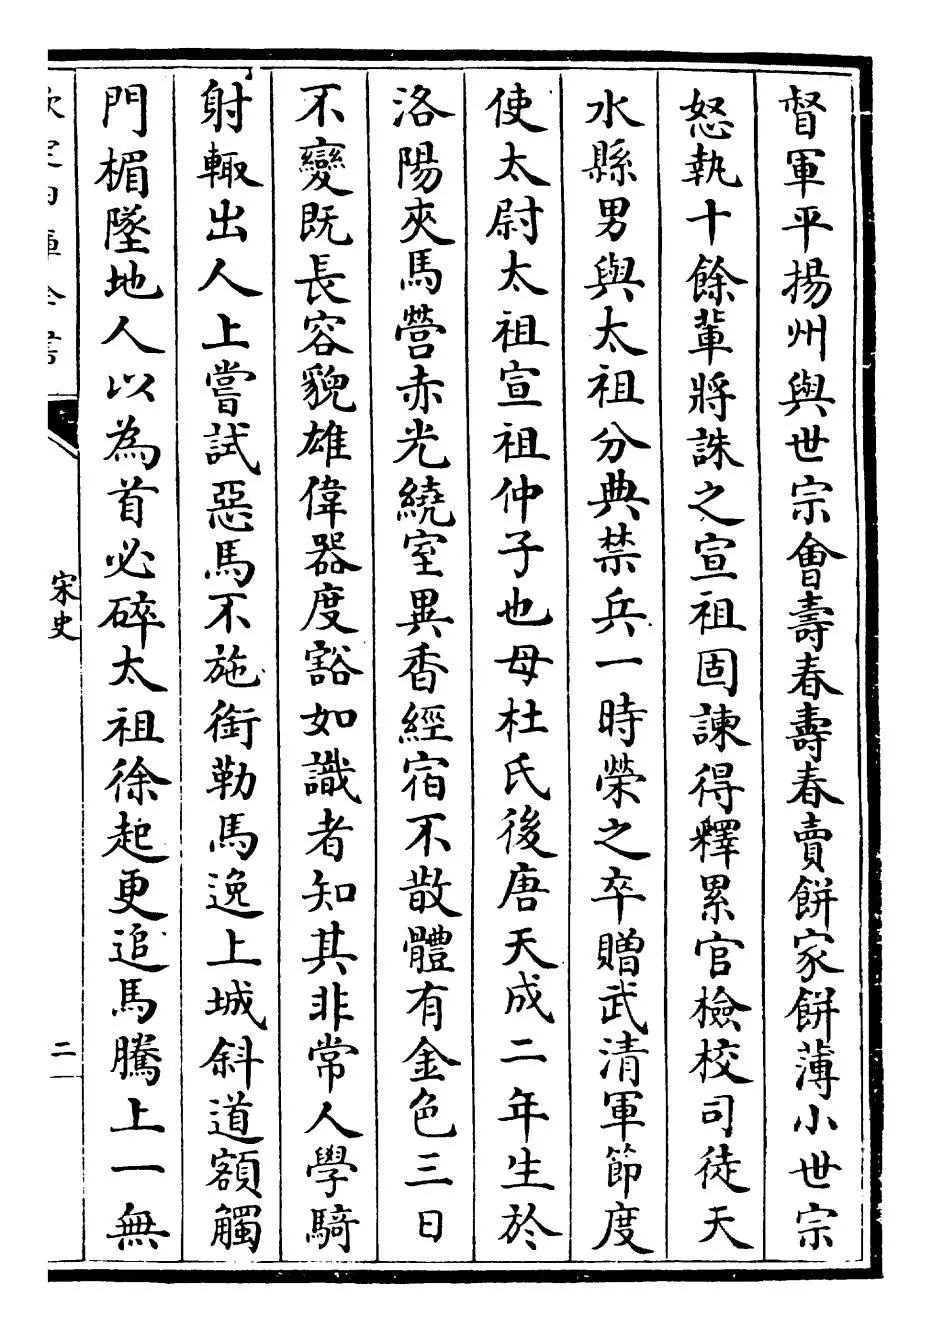 督軍平揚州與世宗會壽春壽春賣餅家餅薄小世宗
怒執十餘軰將誅之宣祖固諫得釋累官檢校司徒天
水縣男與太祖分典禁兵一時榮之卒贈武清軍節度
使太尉太祖宣祖仲子也母杜氏後唐天成二年生於
洛陽夾馬營赤光繞室異香經宿不散體有金色三日
不變既長容貌雄偉器度豁如識者知其非常人學騎
射輙出人上嘗試惡馬不施銜勒馬逸上城斜道額觸
門楣墜地人以為首必碎太祖徐起更追馬騰上一無
欽定四庫全書
宋史
二